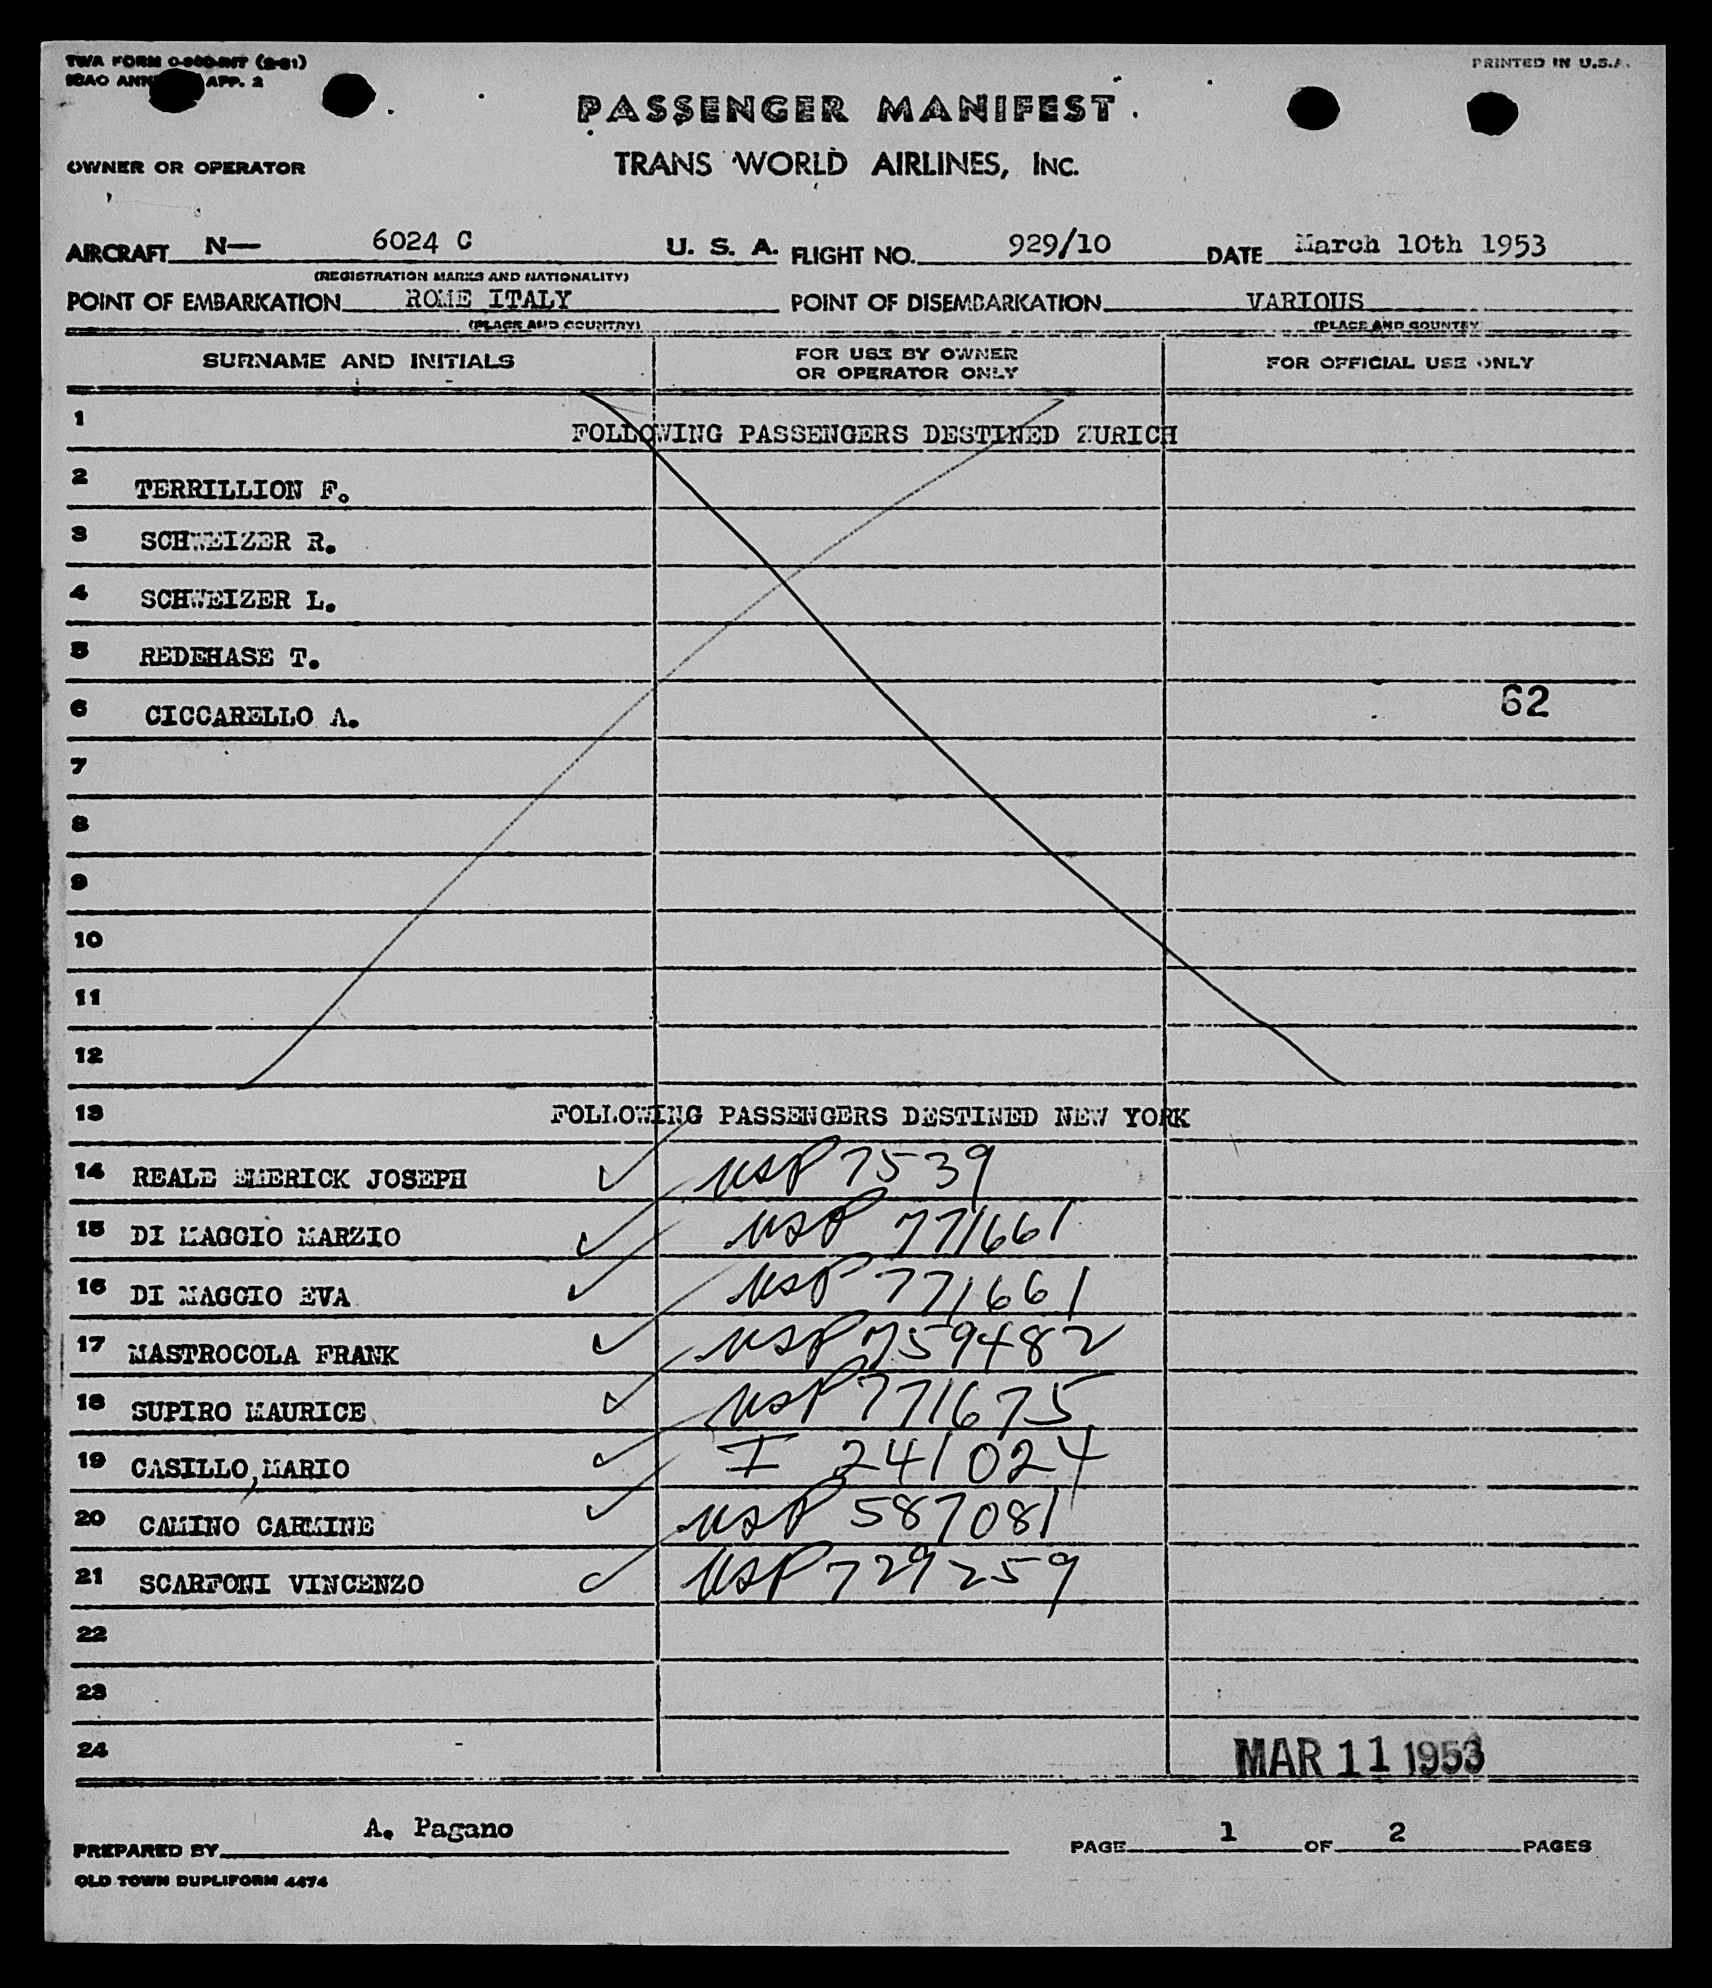 TWA FORM O-900-INT (2-51)
ICAO APP. 2
PRINTED IN U.S.A.
PASSENGER MANIFEST
OWNER OR OPERATOR
TRANS WORLD AIRLINES, INC.
AIRCRAFT N— 6024 C U. S. A. FLIGHT NO. 929/10 DATE March 10th 1953
(REGISTRATION MARKS AND NATIONALITY)
POINT OF EMBARKATION ROME ITALY POINT OF DISEMBARKATION VARIOUS
(PLACE AND COUNTRY) (PLACE AND COUNTRY
SURNAME AND INITIALS FOR USE BY OWNER OR OPERATOR ONLY FOR OFFICIAL USE ONLY
1 FOLLOWING PASSENGERS DESTINED ZURICH
2 TERRILLION F.
3 SCHWEIZER R.
4 SCHWEIZER L.
5 REDEHASE T.
6 CICCARELLO A. 62
7
8
9
10
11
12
13 FOLLOWING PASSENGERS DESTINED NEW YORK
14 REALE EMERICK JOSEPH USP 7539
15 DI MAGGIO MARZIO USP 771661
16 DI MAGGIO EVA USP 771661
17 MASTROCOLA FRANK USP 759482
18 SUPIRO MAURICE USP 771675
19 CASILLO, MARIO I 241024
20 CAMINO CARMINE USP 587081
21 SCARFONI VINCENZO USP 729259
22
23
24 MAR 11 1953
PREPARED BY A. Pagano PAGE 1 OF 2 PAGES
OLD TOWN DUPLIFORM 4474